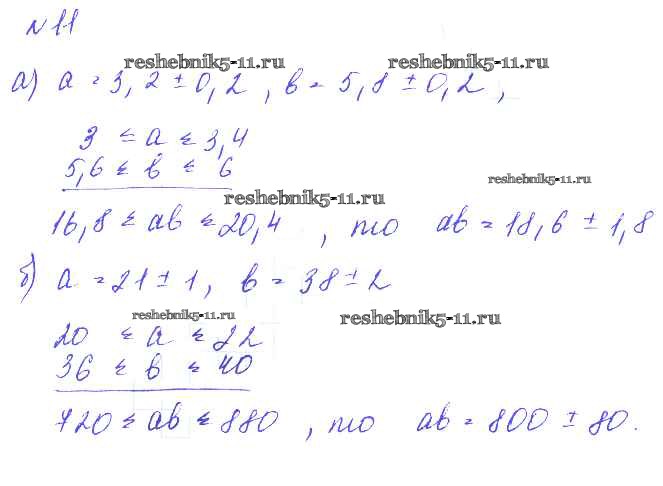 №11
reshebnik5-11.ru reshebnik5-11.ru
а) a = 3,2 ± 0,2, в = 5,8 ± 0,2,
3 ≤ a ≤ 3,4
5,6 ≤ в ≤ 6
reshebnik5-11.ru reshebnik5-11.ru
16,8 ≤ aв ≤ 20,4, то aв = 18,6 ± 1,8
б) a = 21 ± 1, в = 38 ± 2
reshebnik5-11.ru reshebnik5-11.ru
20 ≤ a ≤ 22
36 ≤ в ≤ 40
720 ≤ aв ≤ 880, то aв = 800 ± 80.